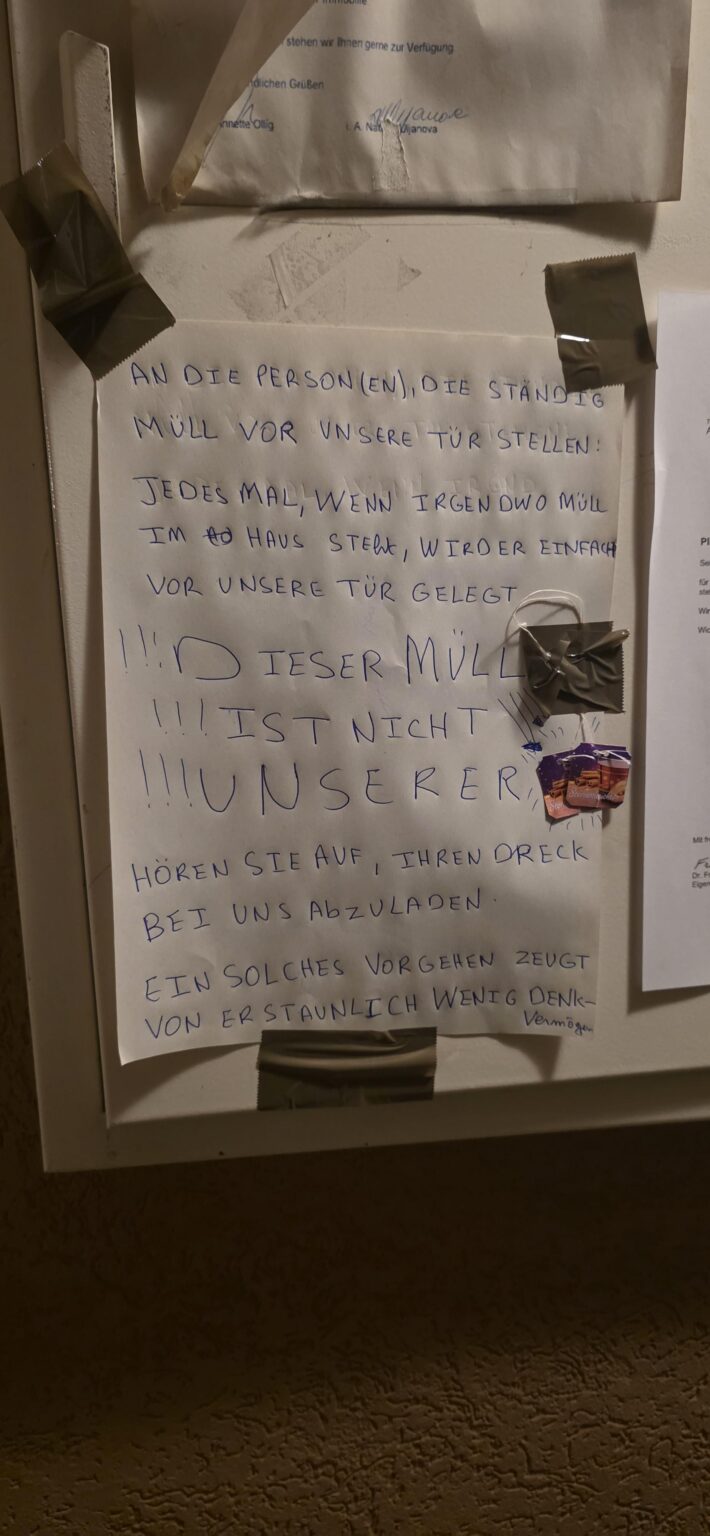 stehen wir Ihnen gerne zur Verfügung
dlichen Grüßen
nnette Ollig
i. A. Nat
Vijanova
AN DIE PERSON(EN), DIE STÄNDIG
MÜLL VOR UNSERE TÜR STELLEN:
JEDES MAL, WENN IRGENDWO MÜLL
IM HAUS STEht, WIRD ER EINFACH
VOR UNSERE TÜR GELEGT
!!! DIESER MÜLL
!!! IST NICHT !!!
!!! UNSERER
HÖREN SIE AUF, IHREN DRECK
BEI UNS AbZULADEN.
EIN SOLCHES VORGEHEN ZEUGT
VON ERSTAUNLICH WENIG DENK-
Vermögen
für
Wir
Mit fr
Dr. F
Eigen